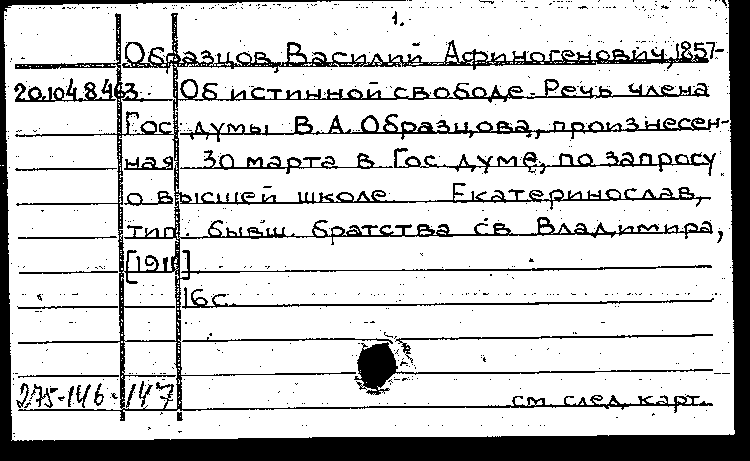 1.
Образцов, Василий Афиногенович, 1857-
20.104.8.463. Об истинной свободе. Речь члена
Гос думы В. А. Образцова, произнесен-
ная 30 марта в Гос думе, по запросу
о высшей школе. Екатеринослав,
тип. бывш. братства св Владимира,
[1911]
16 с.
275-146-147 см след. карт.